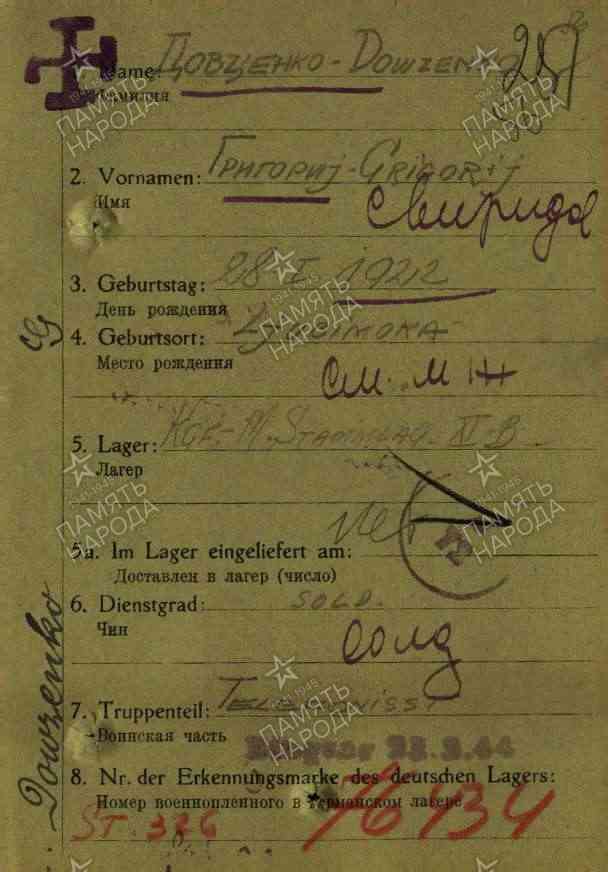 Name: Довценко - Dowzenko
Фамилия
257
2. Vornamen: Григориј - Grigorij
Имя
Свирида
3. Geburtstag: 28 I 1922
День рождения
4. Geburtsort:
Место рождения
См. М Ж
5. Lager: XI-B
Лагер
5a. Im Lager eingeliefert am:
Доставлен в лагер (число)
6. Dienstgrad: SOLD.
Чин
солд
7. Truppenteil: TELEFONISST
Воинская часть
23.3.44
8. Nr. der Erkennungsmarke des deutschen Lagers:
Номер военнопленного в германском лагере
ST. 326 76434
Dowzenko
ПАМЯТЬ НАРОДА
1941-1945